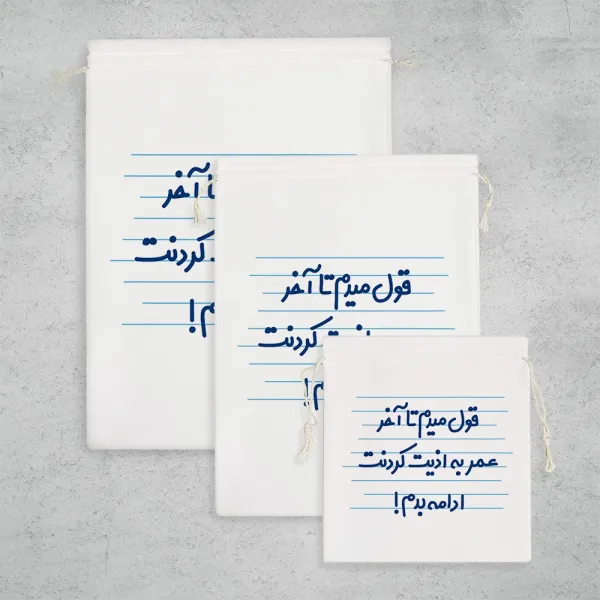 تا آخر
کردنت
م!
قول میدم تا آخر
اذیت کردنت
م!
قول میدم تا آخر
عمر به اذیت کردنت
ادامه بدم!